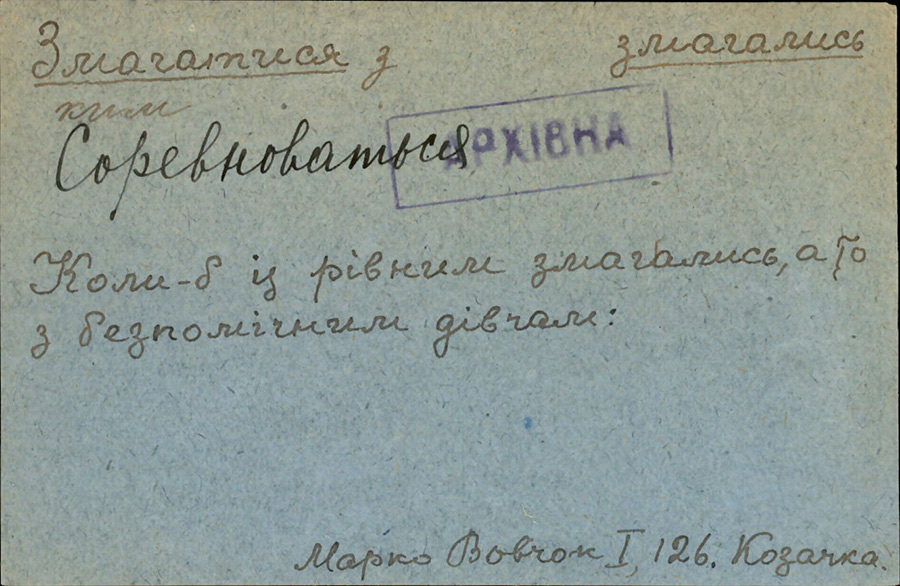 Змагатися з змагались
ким
Соревноваться
АРХІВНА
Коли-б із рівним змагались, а то
з безпомічним дівчам:
Марко Вовчок I, 126. Козачка.